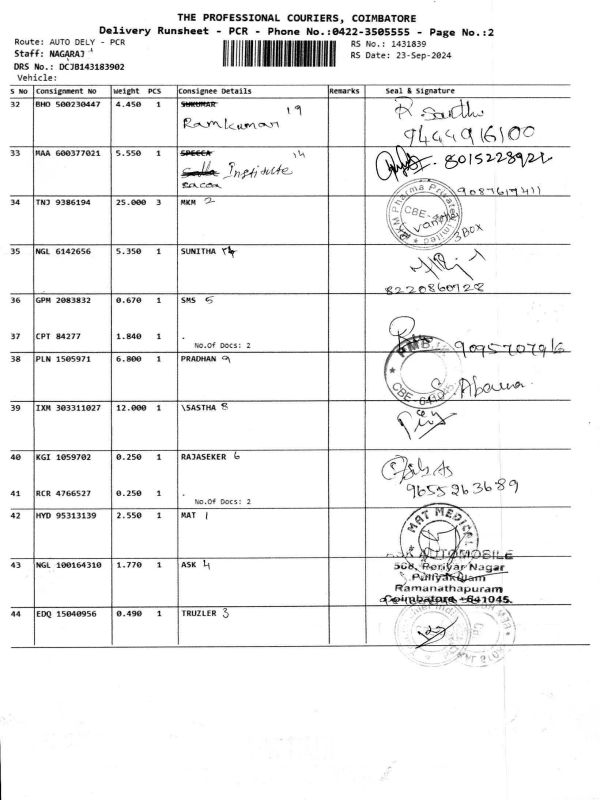 THE PROFESSIONAL COURIERS, COIMBATORE
Delivery Runsheet - PCR - Phone No.:0422-3505555 - Page No.:2
Route: AUTO DELY - PCR RS No.: 1431839
Staff: NAGARAJ RS Date: 23-Sep-2024
DRS No.: DCJB143183902
Vehicle:
S No Consignment No Weight PCS Consignee Details Remarks Seal & Signature
32 BHO 500230447 4.450 1 SUKUMAR 19
Ramkumar
9444916100
33 MAA 600377021 5.550 1 SPECCA 14
Institute 8015228921
sacoa
9087617411
34 TNJ 9386194 25.000 3 MKM 2
MKM Pharma Private Limited
CBE
3 BOX
35 NGL 6142656 5.350 1 SUNITHA 14
8220860728
36 GPM 2083832 0.670 1 SMS 5
37 CPT 84277 1.840 1 .
No.Of Docs: 2
38 PLN 1505971 6.800 1 PRADHAN 9
CBE-641045
39 IXM 303311027 12.000 1 \SASTHA 8
40 KGI 1059702 0.250 1 RAJASEKER 6
9655263689
41 RCR 4766527 0.250 1 .
No.Of Docs: 2
42 HYD 95313139 2.550 1 MAT 1
MAT MEDICAL
ASK AUTOMOBILE
43 NGL 100164310 1.770 1 ASK 4
568, Periyar Nagar
Puliyakulam
Ramanathapuram
Coimbatore - 641045.
44 EDQ 15040956 0.490 1 TRUZLER 3